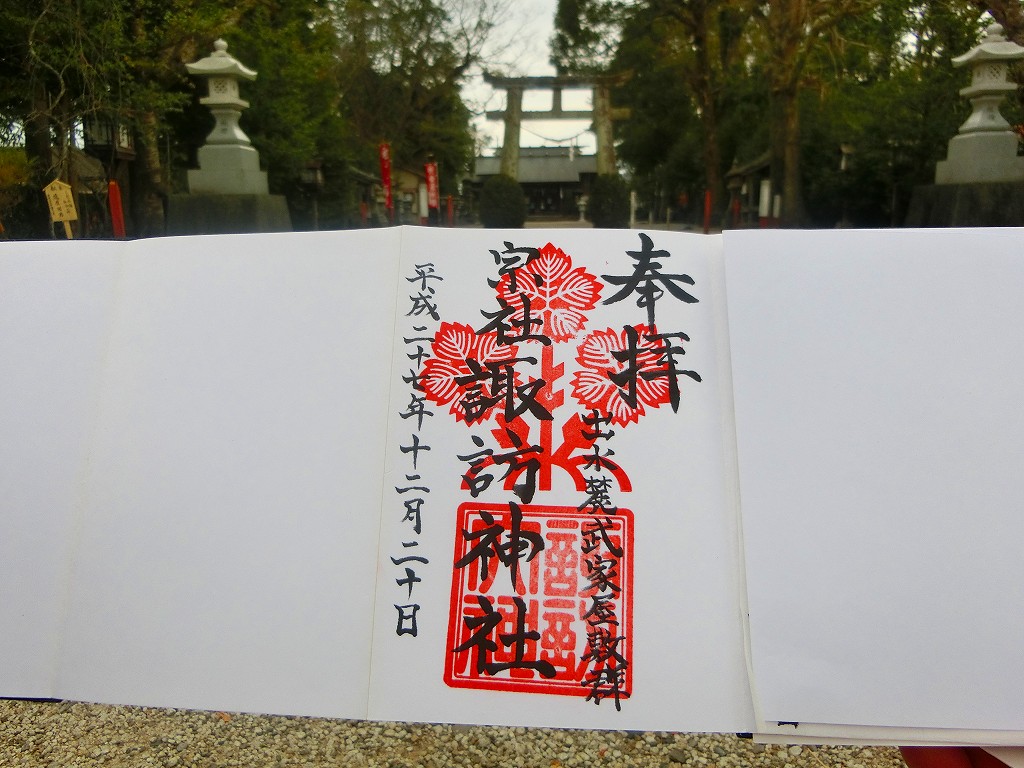 奉拝
出水麓武家屋敷群
宗社諏訪神社
平成二十七年十二月二十日